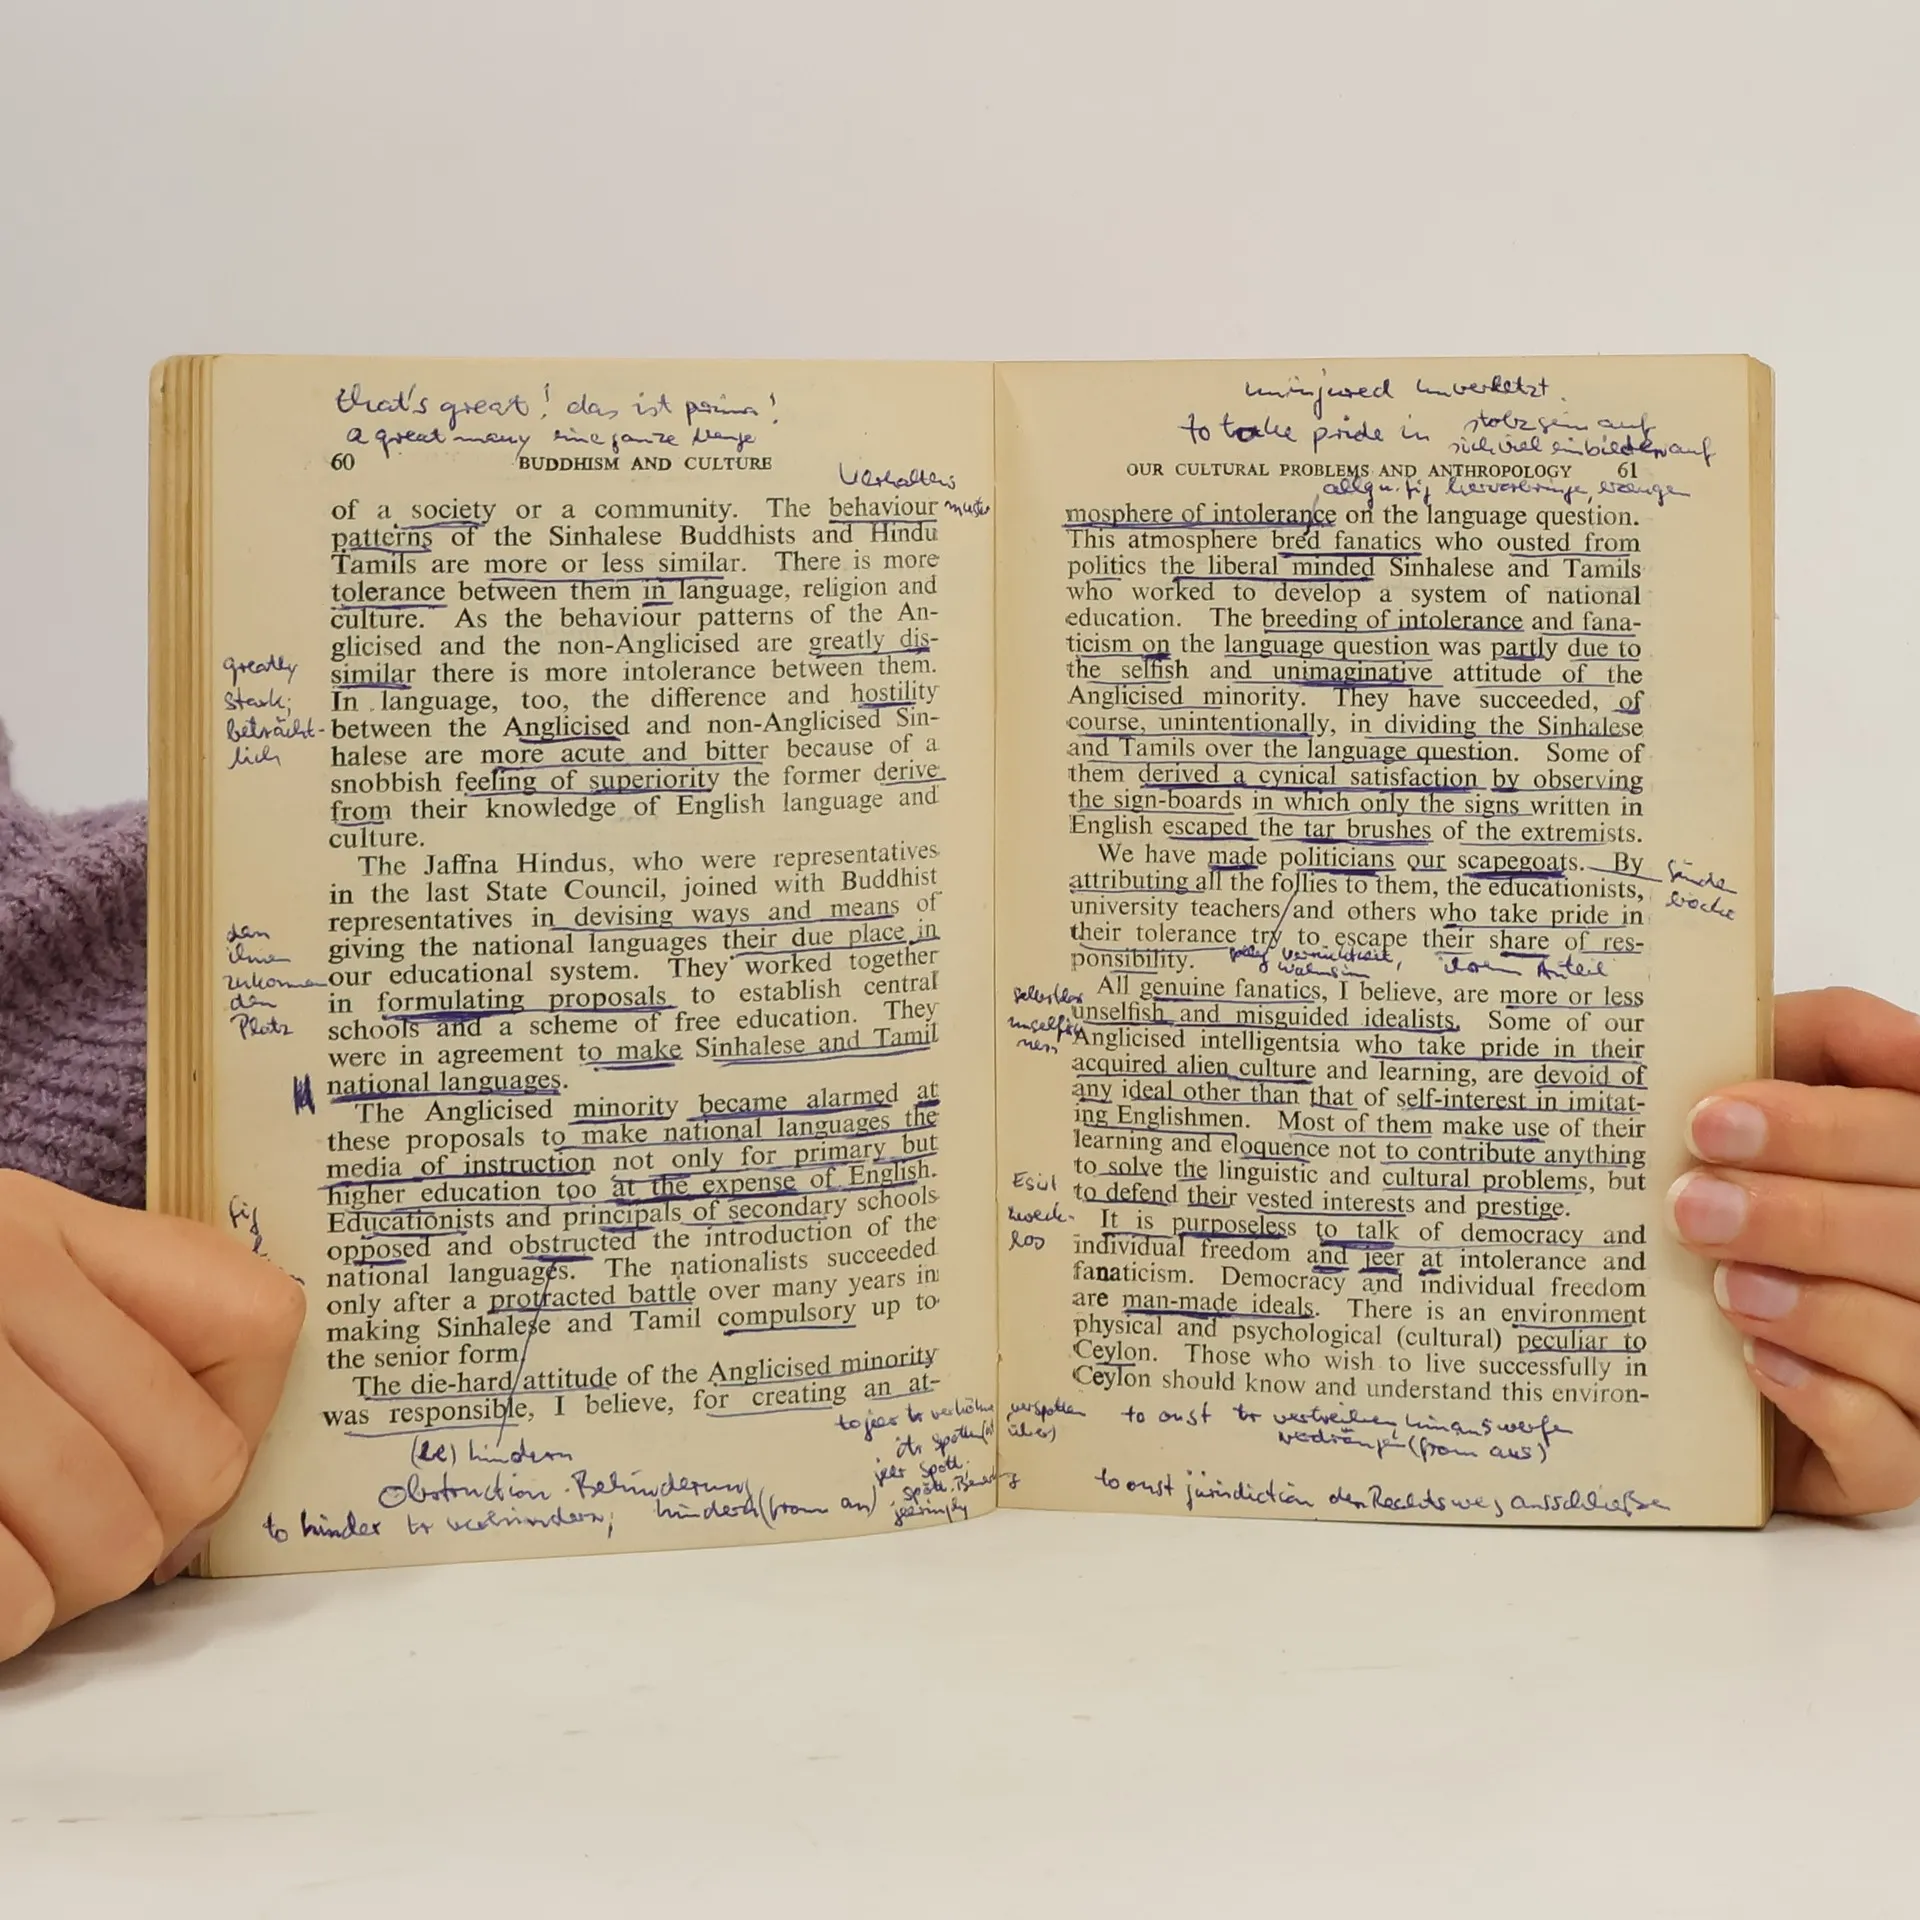 that's great! das ist prima!
a great many eine ganze Menge
60 BUDDHISM AND CULTURE
Verhaltens
muster
of a society or a community. The behaviour
patterns of the Sinhalese Buddhists and Hindu
Tamils are more or less similar. There is more
tolerance between them in language, religion and
culture. As the behaviour patterns of the An-
glicised and the non-Anglicised are greatly dis-
similar there is more intolerance between them.
In language, too, the difference and hostility
between the Anglicised and non-Anglicised Sin-
halese are more acute and bitter because of a
snobbish feeling of superiority the former derive
from their knowledge of English language and
culture.
greatly
stark;
beträcht-
lich
The Jaffna Hindus, who were representatives
in the last State Council, joined with Buddhist
representatives in devising ways and means of
giving the national languages their due place in
our educational system. They worked together
in formulating proposals to establish central
schools and a scheme of free education. They
were in agreement to make Sinhalese and Tamil
national languages.
den
ihnen
zukommen
den
Platz
The Anglicised minority became alarmed at
these proposals to make national languages the
media of instruction not only for primary but
higher education too at the expense of English.
Educationists and principals of secondary schools
opposed and obstructed the introduction of the
national languages. The nationalists succeeded
only after a protracted battle over many years in
making Sinhalese and Tamil compulsory up to
the senior form.
fig
The die-hard attitude of the Anglicised minority
was responsible, I believe, for creating an at-
hindern
Obstruction Behinderung
to hinder tr verhindern; hindern (from an)
to jeer tr verhöhnen
verspotten
itr spotten (at
über)
jeer Spott
jeeringly
uninjured unverletzt
to take pride in stolz sein auf
sich viel einbilden auf
OUR CULTURAL PROBLEMS AND ANTHROPOLOGY 61
allg u. fig hervorbringen, erzeugen
mosphere of intolerance on the language question.
This atmosphere bred fanatics who ousted from
politics the liberal minded Sinhalese and Tamils
who worked to develop a system of national
education. The breeding of intolerance and fana-
ticism on the language question was partly due to
the selfish and unimaginative attitude of the
Anglicised minority. They have succeeded, of
course, unintentionally, in dividing the Sinhalese
and Tamils over the language question. Some of
them derived a cynical satisfaction by observing
the sign-boards in which only the signs written in
English escaped the tar brushes of the extremists.
We have made politicians our scapegoats. By
attributing all the follies to them, the educationists,
university teachers and others who take pride in
their tolerance try to escape their share of res-
ponsibility.
Sünden
böcke
ihrem Anteil
Wahnsinn
All genuine fanatics, I believe, are more or less
unselfish and misguided idealists. Some of our
Anglicised intelligentsia who take pride in their
acquired alien culture and learning, are devoid of
any ideal other than that of self-interest in imitat-
ing Englishmen. Most of them make use of their
learning and eloquence not to contribute anything
to solve the linguistic and cultural problems, but
to defend their vested interests and prestige.
selbstlos
unselfish
ness
It is purposeless to talk of democracy and
individual freedom and jeer at intolerance and
fanaticism. Democracy and individual freedom
are man-made ideals. There is an environment
physical and psychological (cultural) peculiar to
Ceylon. Those who wish to live successfully in
Ceylon should know and understand this environ-
zweck-
los
to oust tr vertreiben, hinauswerfen
verdrängen (from aus)
to oust jurisdiction den Rechtsweg ausschließen